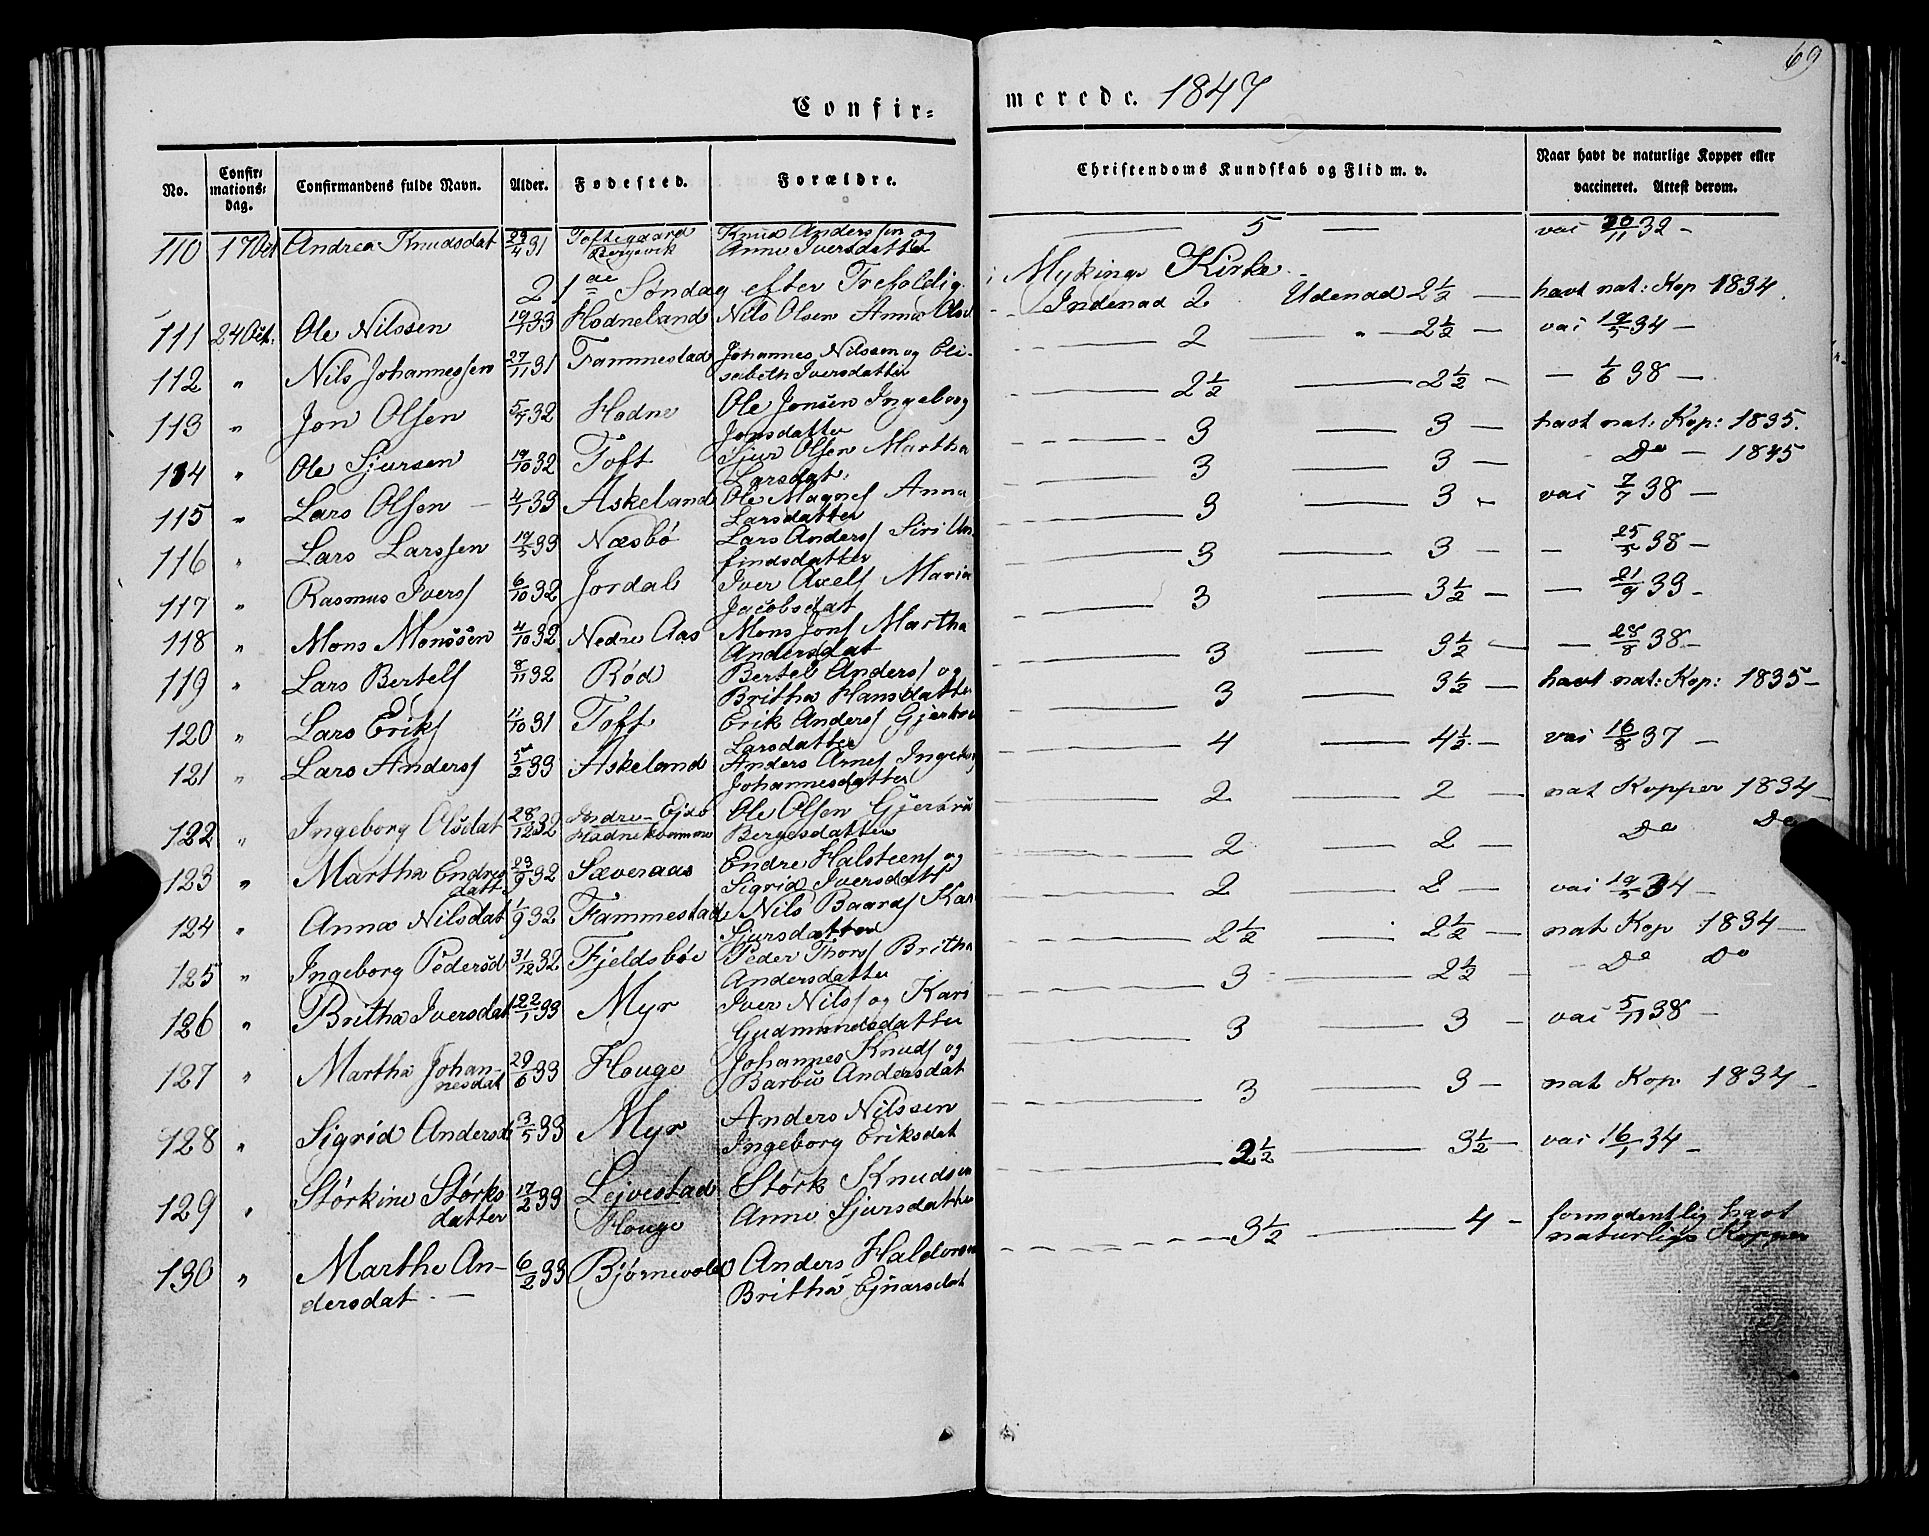 69
Confir= merede. 1847
No. Confirmationsdag. Confirmandens fulde Navn. Alder. Fødested. Forældre. Christendoms Kundskab og Flid m. v. Naar havt de naturlige Kopper eller vaccineret. Attest derom.
110 17 Oct Andrea Knudsdat 29/4 31 Toftegaard Bergevik Knud Anderssen og Anne Iversdatter 5 — vac 20/11 32 —
21de Søndag efter Trefoldig. i Mykings Kirke.
111 24 Oct. Ole Nilssen 19/1 33 Hodneland Nils Olsen Anna Indenad 2 Udenad 2½ — havt nat: Kop 1834.
112 " Nils Johannessen 27/11 31 Fammestad Johannes Nilssen og Elisabeth Iversdatter 2 — " 2½ — vac 19/5 34 —
113 " Jon Olsen 5/4 32 Hodne Ole Jonsen Ingeborg Jonsdatter 2½ — 2½ — — 1/6 38 —
114 " Ole Sjursen 19/10 32 Toft Sjur Olsen Martha Larsdat. 3 — 3 — havt nat: Kop: 1835.
115 " Lars Olsen — 4/1 33 Askeland Ole Magnes Anna Larsdatter 3 — 3 — Do — 1845
116 " Lars Larssen 19/5 33 Næsbø Lars Anderss Siri Anfindsdatter 3 — 3 — vac 7/7 38 —
117 " Rasmus Ivers 6/10 32 Jordal Iver Axels Maria Jacobsdat 3 — 3 — — 25/5 38 —
118 " Mons Monssen 4/10 32 Nedre Aas Mons Jons Martha Andersdat 3 — 3½ — — 21/9 33 —
119 " Lars Bertels 8/11 32 Rød Bertel Anderss og Britha Hansdatter 3 — 3½ — — 28/8 38 —
120 " Lars Eriks 11/10 31 Toft Erik Anderss Larsdatter 3 — 3½ — havt nat: Kop: 1835 —
121 " Lars Anderss 5/2 33 Askeland Anders Arnes Ingeborg Johannesdatter 4 — 4½ — vac 16/8 37 —
122 " Ingeborg Olsdat 28/12 32 Indre Ole Olsen Bergesdatter 2 — 2 — nat Kopper 1834 —
123 " Martha Endresdatt 23/9 32 Sæveraas Endre Halsteens og Sigrid Iversdatt 2 — 2 — Do Do
124 " Anna Nilsdat 1/9 32 Fammestad Nils Baards Kari Sjursdatter 2 — 2 — vac 19/5 34 —
125 " Ingeborg Pedersd 31/12 32 Fjeldsbøe Peder Thors Britha Andersdatter 2½ — 2½ — nat Kop 1834 —
126 " Britha Iversdat 22/1 33 Myr Iver Nils og Kari Gudmundsdatter 3 — 2½ — Do Do
127 " Martha Johannesdat 29/6 33 Houge Johannes Knuds og Barbu Andersdat 3 — 3 — vac 5/11 38 —
128 " Sigrid Andersd 3/5 33 Myr Anders Nilssen Ingeborg Eriksdat 3 — 3 — nat Kop. 1834 —
129 " Størkine Størksdatter 17/2 33 Lejvestad Houge Størk Knudsen Anne Sjursdatter 2½ — 3½ — vac 16/1 34 —
130 " Marthe Andersdat. — 6/2 33 Bjørnevold Anders Haldorsen Britha Ejnarsdat 3½ — 4 — formodentlig havt naturlige Kopper